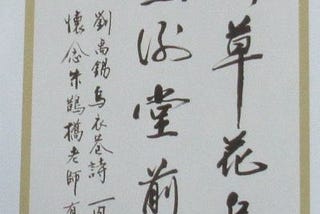 草花
謝堂前
劉禹錫烏衣巷詩
懷念朱鵲橋老師